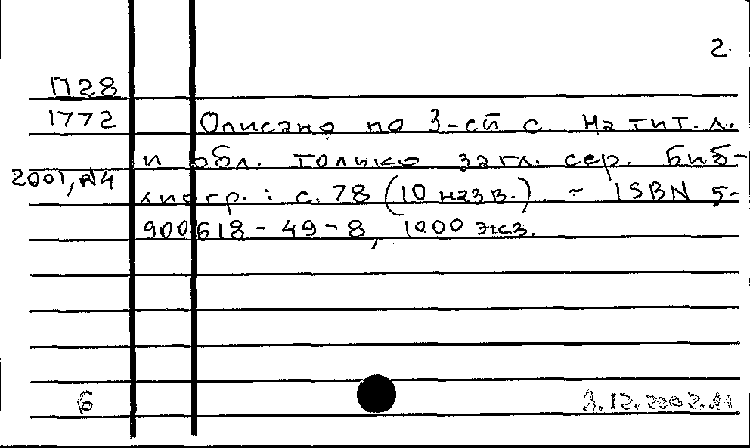 2
П28
1772 Описано по 3-ей с. На тит. л.
и обл. только загл. сер. Биб-
2001, №4 лиогр.: с. 78 (10 назв.) ~ ISBN 5-
900618-49-8, 1000 экз.
6